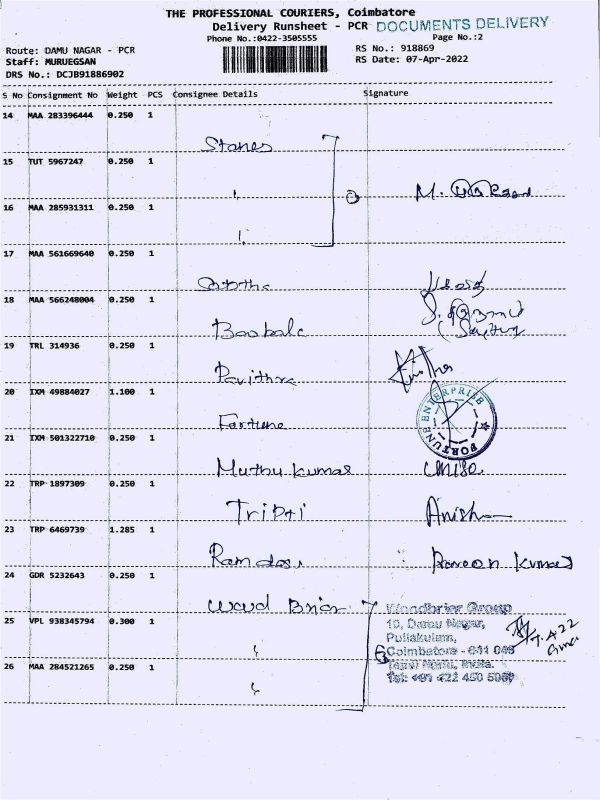 THE PROFESSIONAL COURIERS, Coimbatore
Delivery Runsheet - PCR DOCUMENTS DELIVERY
Phone No.:0422-3505555 Page No.:2
Route: DAMU NAGAR - PCR RS No.: 918869
Staff: MURUEGSAN RS Date: 07-Apr-2022
DRS No.: DCJB91886902
S No Consignment No Weight PCS Consignee Details Signature
14 MAA 283396444 0.250 1
Stanes
15 TUT 5967247 0.250 1
M.
16 MAA 285931311 0.250 1
17 MAA 561669640 0.250 1
18 MAA 566248004 0.250 1
Boobala
19 TRL 314936 0.250 1
Pavithra
20 IXM 49884027 1.100 1
Fortune FORTUNE ENTERPRISE
21 IXM 501322710 0.250 1
Muthu kumar
22 TRP 1897309 0.250 1
Tripti Anish
23 TRP 6469739 1.285 1
Ramdas Praveen Kumar
24 GDR 5232643 0.250 1
Wood Brier Woodbrier Group
10, Damu Nagar,
25 VPL 938345794 0.300 1 Puliakulam,
Coimbatore - 641 045
26 MAA 284521265 0.250 1 Tamil Nadu, India.